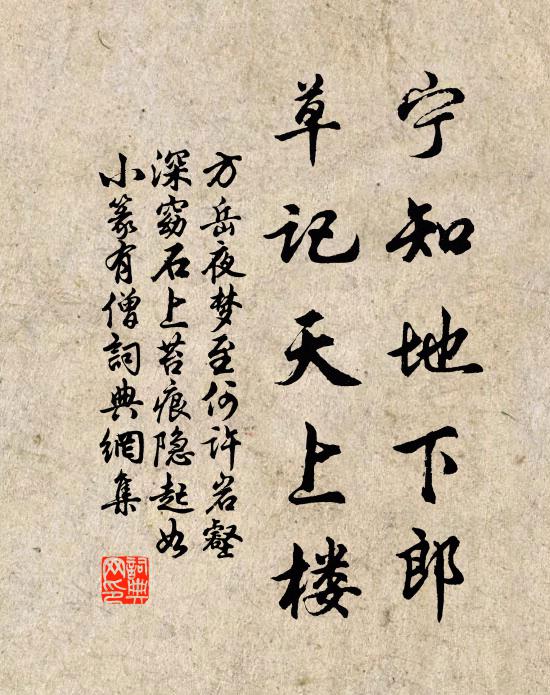 宁知地下郎
草记天上楼
方岳夜梦至何许岩壑
深窈石上苔痕隐起如
小篆有僧詞典網集
詞典
网印